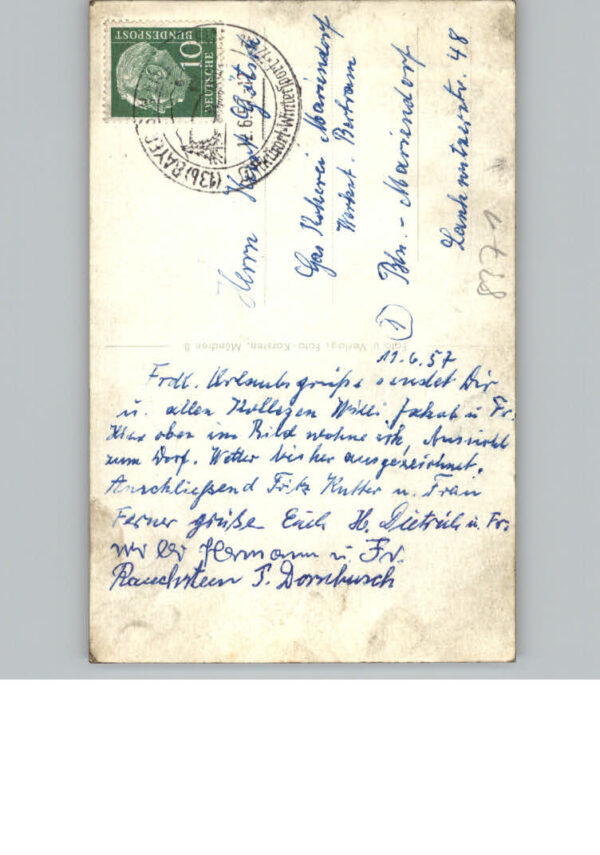 10
DEUTSCHE
BUNDESPOST
(13b) BAYER
Luftkurort-Wintersport
Herrn Kurt
Gas Kokerei Mariendorf
Werkst. Bertram
(1) Bln. - Mariendorf
Lankwitzerstr. 48
8871
Foto u. Verlag: Foto-Karsten, München 9
11.6.57
Frdl. Urlaubsgrüße sendet Dir
u. allen Kollegen Willi Jakob u. Fr.
Hier oben im Bild wohne ich, Aussicht
zum Dorf. Wetter bisher ausgezeichnet.
Anschließend Fritz Kutter u. Frau
Ferner grüße Euch H. Dietrich u. Fr.
Willi Hermann u. Fr.
Rauchstein P. Dornbusch